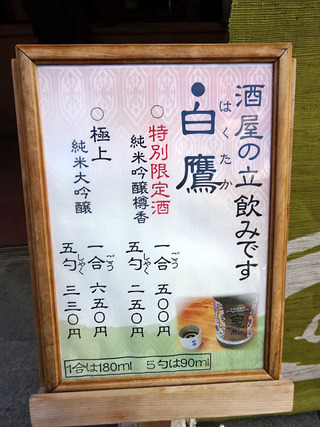 酒屋の立飲みです
●白鷹
はくたか
○特別限定酒
純米吟醸樽香
一合 五〇〇円
ごう
五勺 二五〇円
しゃく
○極上
純米大吟醸
一合 六五〇円
ごう
五勺 三三〇円
しゃく
1合は180ml 5勺は90ml